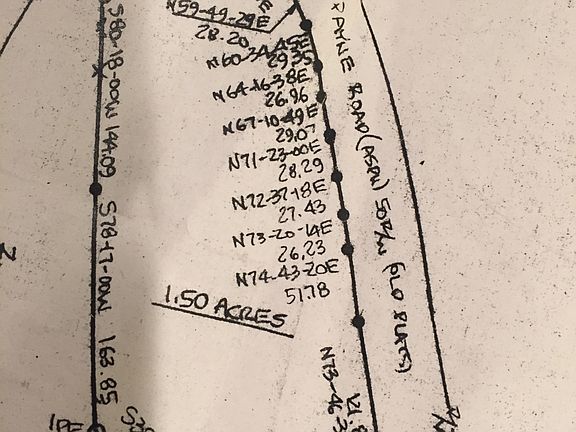 N59-49-29E
28.20
N60-34-45E
29.35
N64-16-38E
26.96
N67-10-49E
29.07
N71-23-00E
28.29
N72-37-18E
27.43
N73-20-14E
26.23
N74-43-20E
51.78
1.50 ACRES
S80-18-00W 144.09
S78-17-00W 163.85
PAYNE ROAD (ASPH) 50' R/W (OLD PLATS)
N73-46
R/W
Z